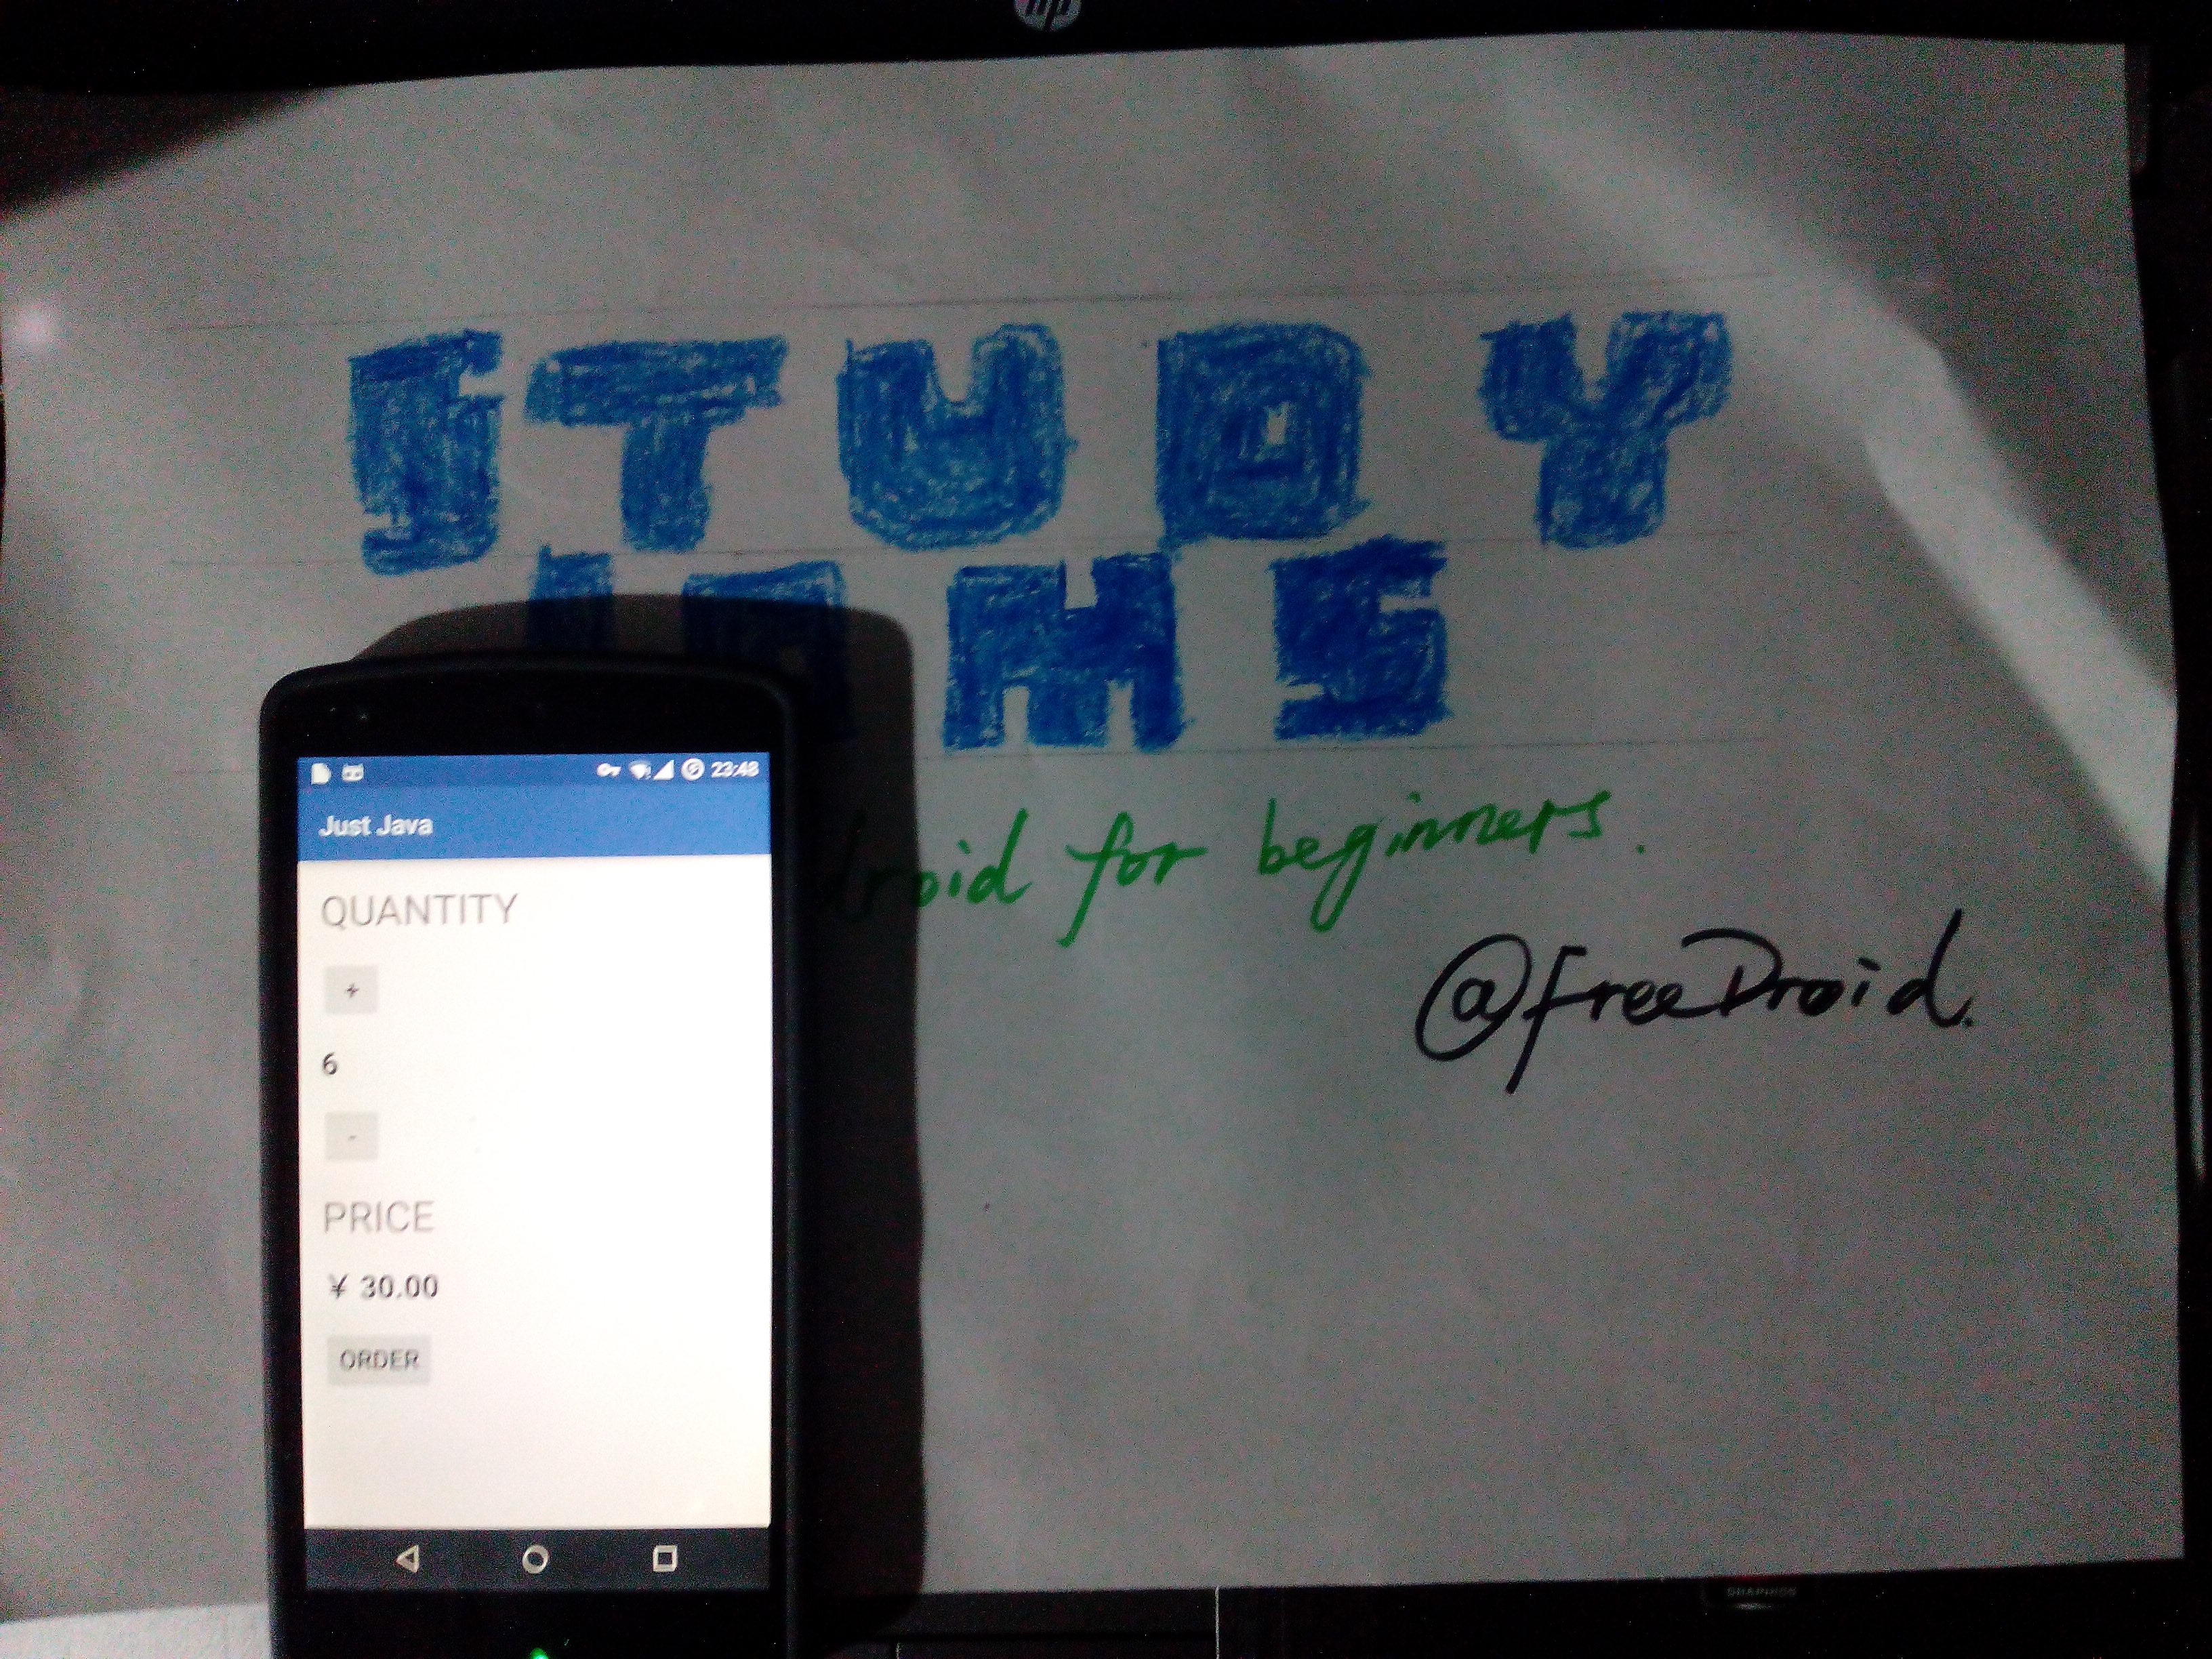 hp
STUDY
JAMS
droid for beginners.
@freeDroid.
23:48
Just Java
QUANTITY
+
6
-
PRICE
¥ 30.00
ORDER